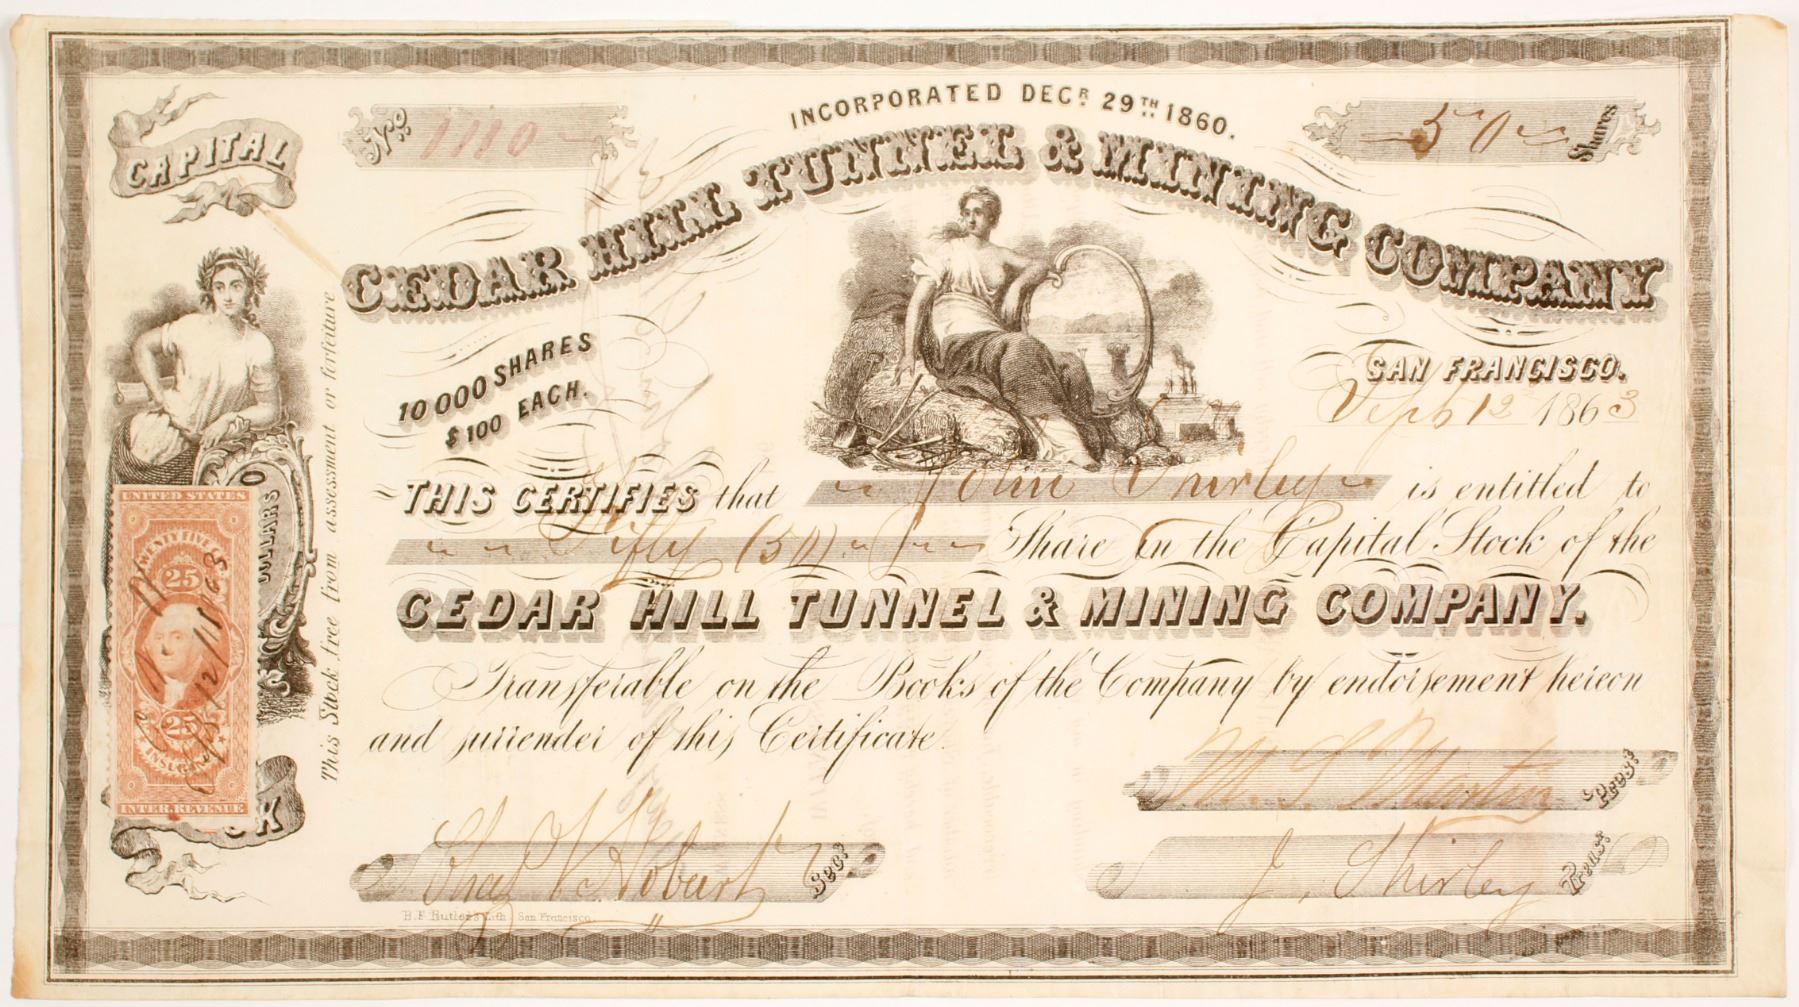 INCORPORATED DECR. 29TH 1860.
No 1110
50 Shares
CAPITAL
CEDAR HILL TUNNEL & MINING COMPANY
10000 SHARES
$100 EACH.
SAN FRANCISCO.
Sept 12 1863
THIS CERTIFIES that John Shirley is entitled to
Fifty (50) Share in the Capital Stock of the
CEDAR HILL TUNNEL & MINING COMPANY.
Transferable on the Books of the Company by endorsement hereon
and surrender of this Certificate.
This Stock free from assessment or forfeiture
DOLLARS
UNITED STATES
TWENTY FIVE
25
25
INTER. REVENUE
CK
M. S. Martin Prest
Chas V. Hobart Secy
J. Shirley Treasr
B. F. Butler's Lith. San Francisco.